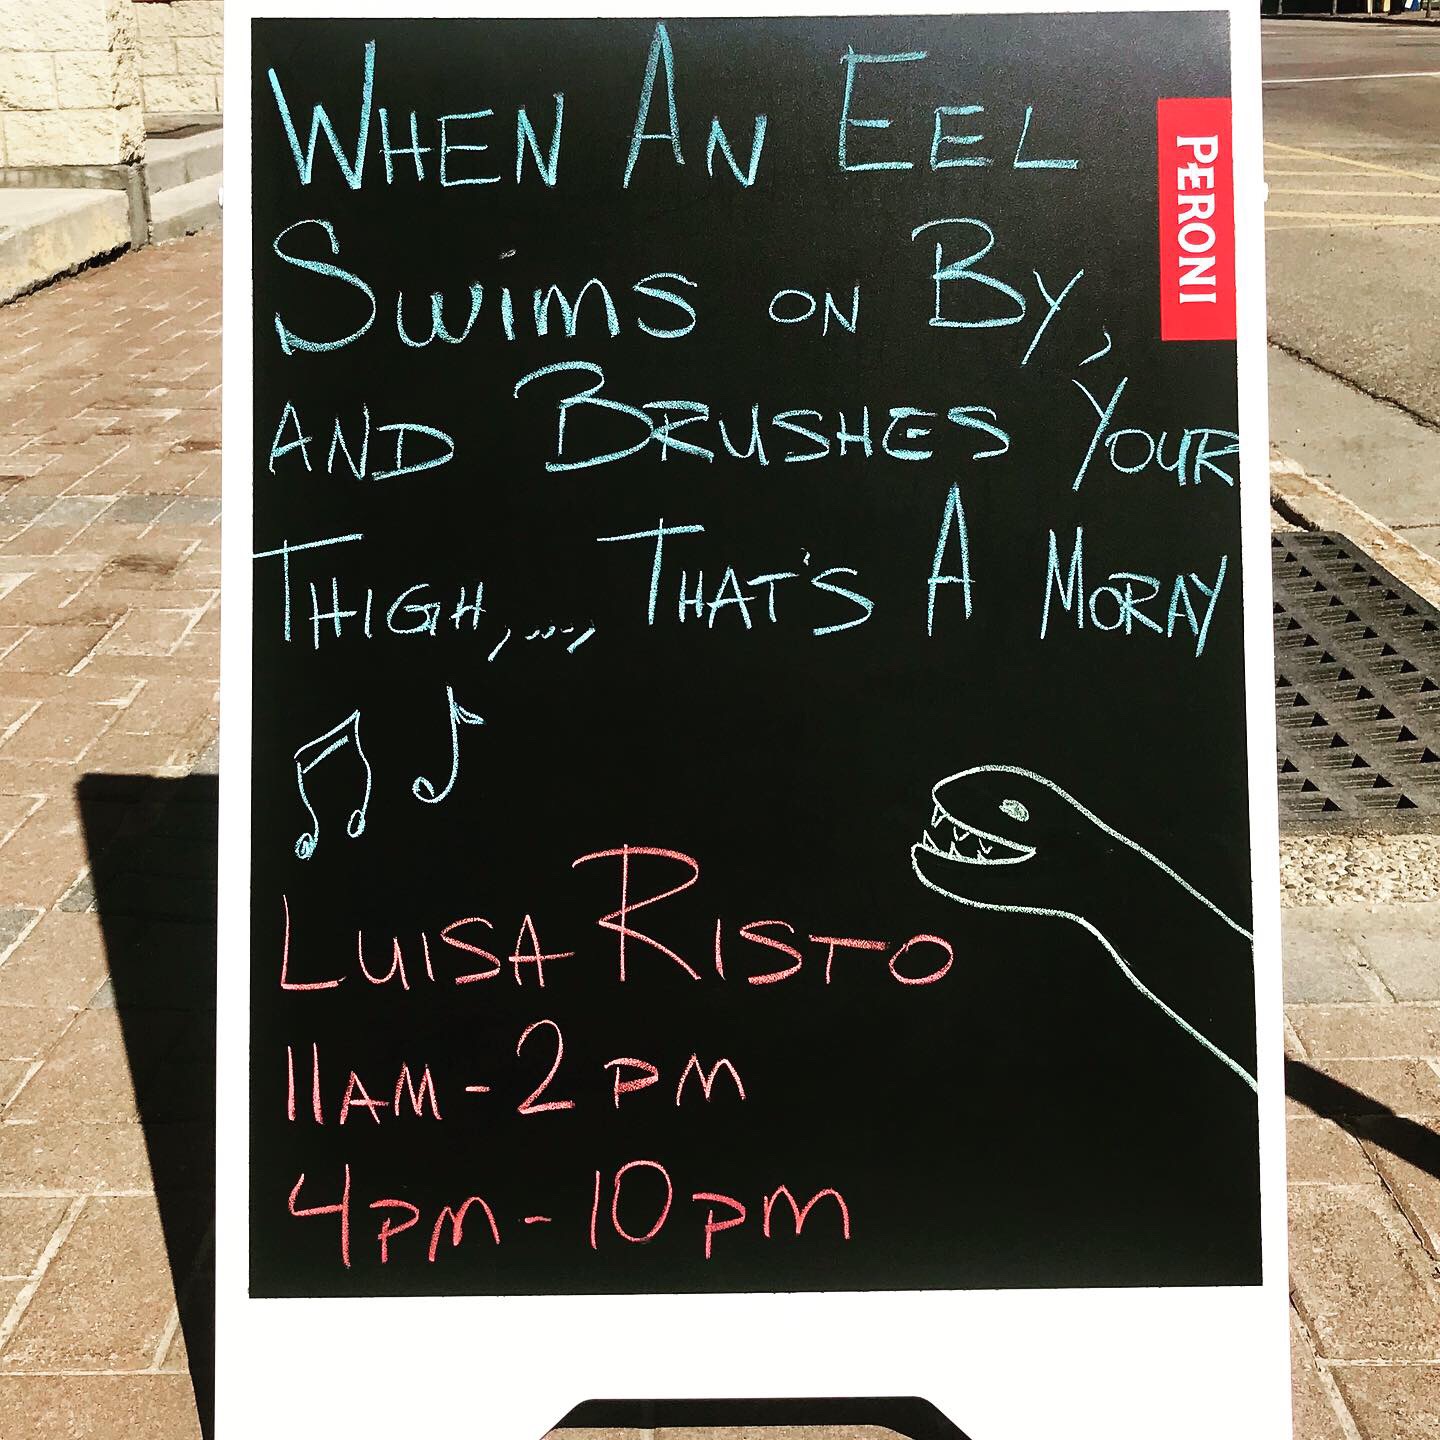 WHEN AN EEL
SWiMS ON BY,
AND BRUSHES YOUR
THIGH,...., THAT'S A MORAY
LUISA RISTO
11AM - 2PM
4PM - 10PM
PERONI